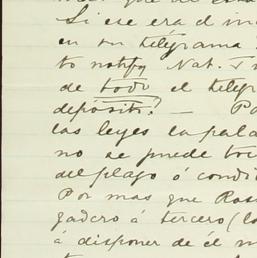 Si ese era el
en su telégrama
to notify Nat.
de todo el telégr
depósito? — Po
las leyes la pala
no se puede toc
del plazo ó condi
Por mas que Ros
gadero á tercero (lo
á disponer de él m